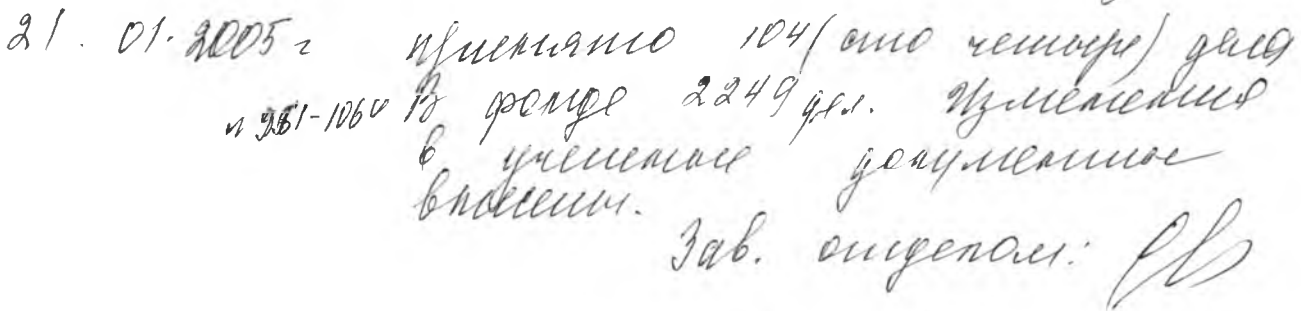 21. 01. 2005 г принято 104 (сто четыре) дела
В фонде 2249 дел. Изменения
в учетные документы
внесены.
Зав. отделом: